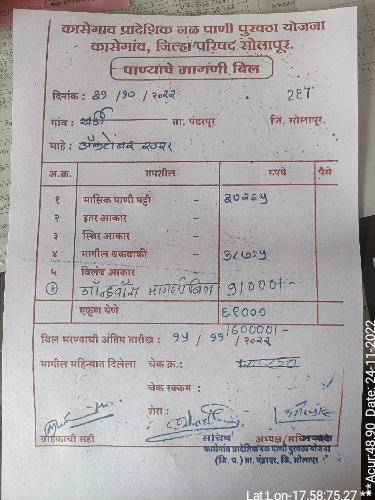 कासेगाव प्रादेशिक नळ पाणी पुरवठा योजना
कासेगांव, जिल्हा परिषद सोलापूर.
पाण्याचे मागणी बिल
दिनांक : ३१ / १० / २०२२
गांव : खर्डी ता. पंढरपूर जि. सोलापूर.
माहे : ऑक्टोंबर २०२२
अ.क्र. तपशील रुपये पैसे
१ मासिक पाणी पट्टी - ३०२२५
२ इतर आकार -
३ स्थिर आकार -
४ मागील थकबाकी - ३८७७५
५ विलंब आकार
मागणी बिल 91000/-
एकूण येणे ६९०००
160000/-
बिल भरण्याची अंतिम तारीख : १५ / ११ / २०२२
मागील महिन्यात दिलेला चेक क्र.:
चेक रक्कम :
शेरा :
ग्राहकाची सही सचिव अध्यक्ष/सचिव
कासेगांव प्रादेशिक नळ पाणी पुरवठा योजना
(जि. प.) ता. पंढरपूर, जि. सोलापूर
Lat:Lon-17.58:75.27 ***Acur:48.90 Date: 24-11-2022